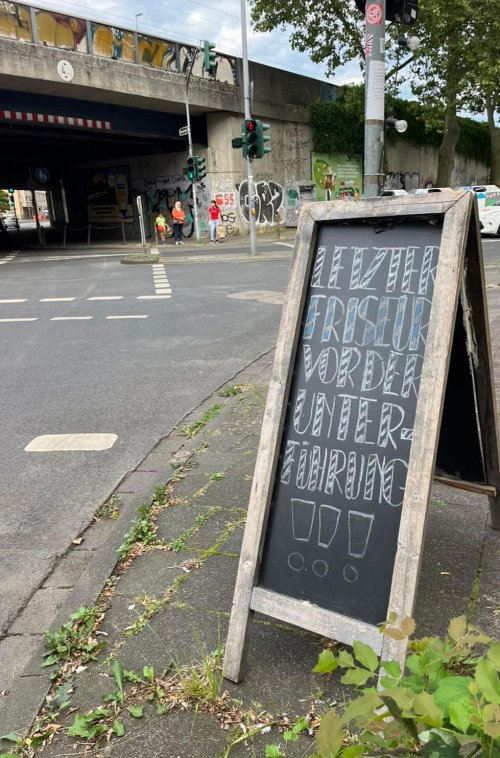 LETZTER
FRISEUR
VOR DER
UNTER-
FÜHRUNG
!!!